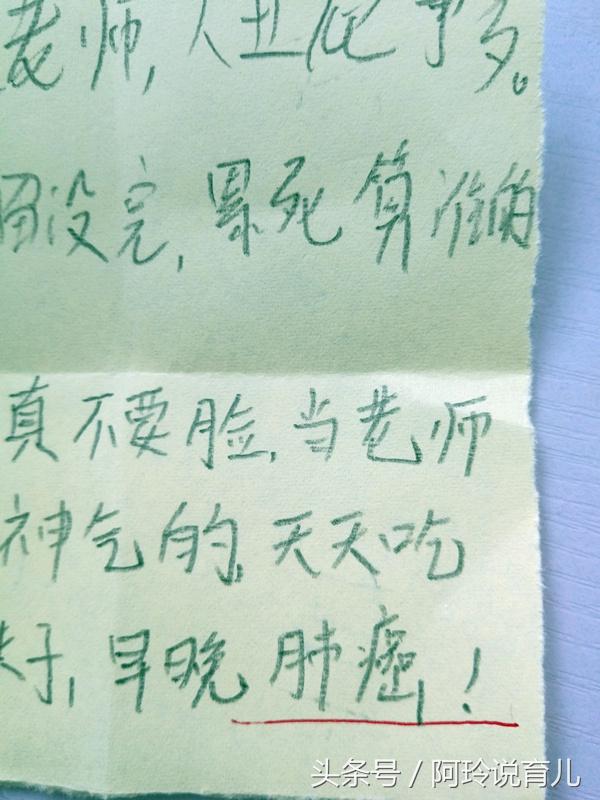 老师,人丑屁事多。
没完,累死算谁的
真不要脸,当老师
神气的,天天吃
子,早晚肺癌,!
头条号 / 阿玲说育儿